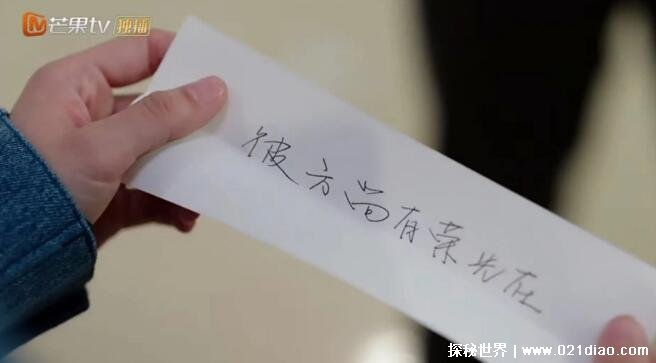 芒果tv 独播
彼方尚有荣光在
探秘世界 | www.021diao.com